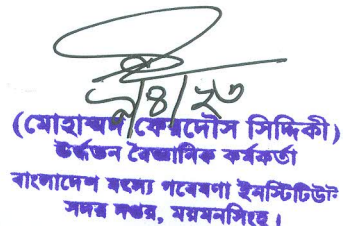 ৪/২৩
(মোহাম্মদ ফেরদৌস সিদ্দিকী)
উর্দ্ধতন বৈজ্ঞানিক কর্মকর্তা
বাংলাদেশ মৎস্য গবেষণা ইনস্টিটিউট
সদর দপ্তর, ময়মনসিংহ।